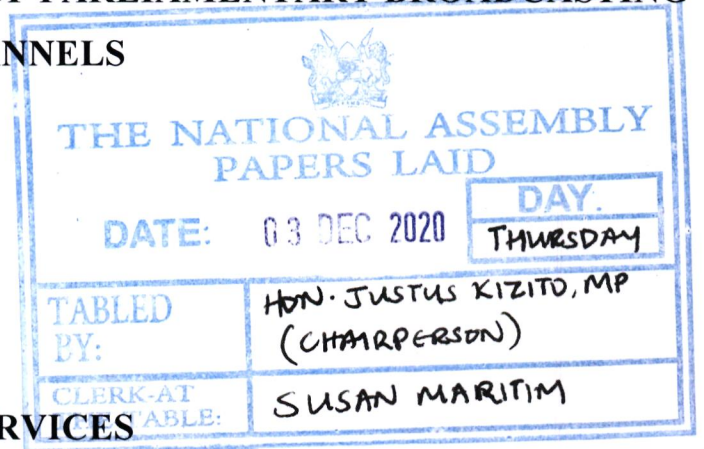 PARLIAMENTARY BROADCASTING
NNELS
THE NATIONAL ASSEMBLY
PAPERS LAID
DATE: 03 DEC 2020
DAY.
THURSDAY
TABLED
BY:
HON. JUSTUS KIZITO, MP
(CHAIRPERSON)
CLERK-AT
TABLE:
SUSAN MARITIM
RVICES